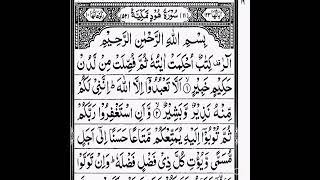 سُوْرَةُ هُوْدٍ مَّكِّيَّةٌ
بِسْمِ اللّٰهِ الرَّحْمٰنِ الرَّحِيْمِ
الٓرٰ كِتٰبٌ اُحْكِمَتْ اٰيٰتُهٗ ثُمَّ فُصِّلَتْ مِنْ لَّدُنْ
حَكِيْمٍ خَبِيْرٍ ۙ﴿۱﴾ اَلَّا تَعْبُدُوْۤا اِلَّا اللّٰهَ ؕ اِنَّنِيْ لَكُمْ
مِّنْهُ نَذِيْرٌ وَّبَشِيْرٌ ۙ﴿۲﴾ وَّاَنِ اسْتَغْفِرُوْا رَبَّكُمْ
ثُمَّ تُوْبُوْۤا اِلَيْهِ يُمَتِّعْكُمْ مَّتَاعًا حَسَنًا اِلٰۤى اَجَلٍ
مُّسَمًّى وَّيُؤْتِ كُلَّ ذِيْ فَضْلٍ فَضْلَهٗ ؕ وَاِنْ تَوَلَّوْا